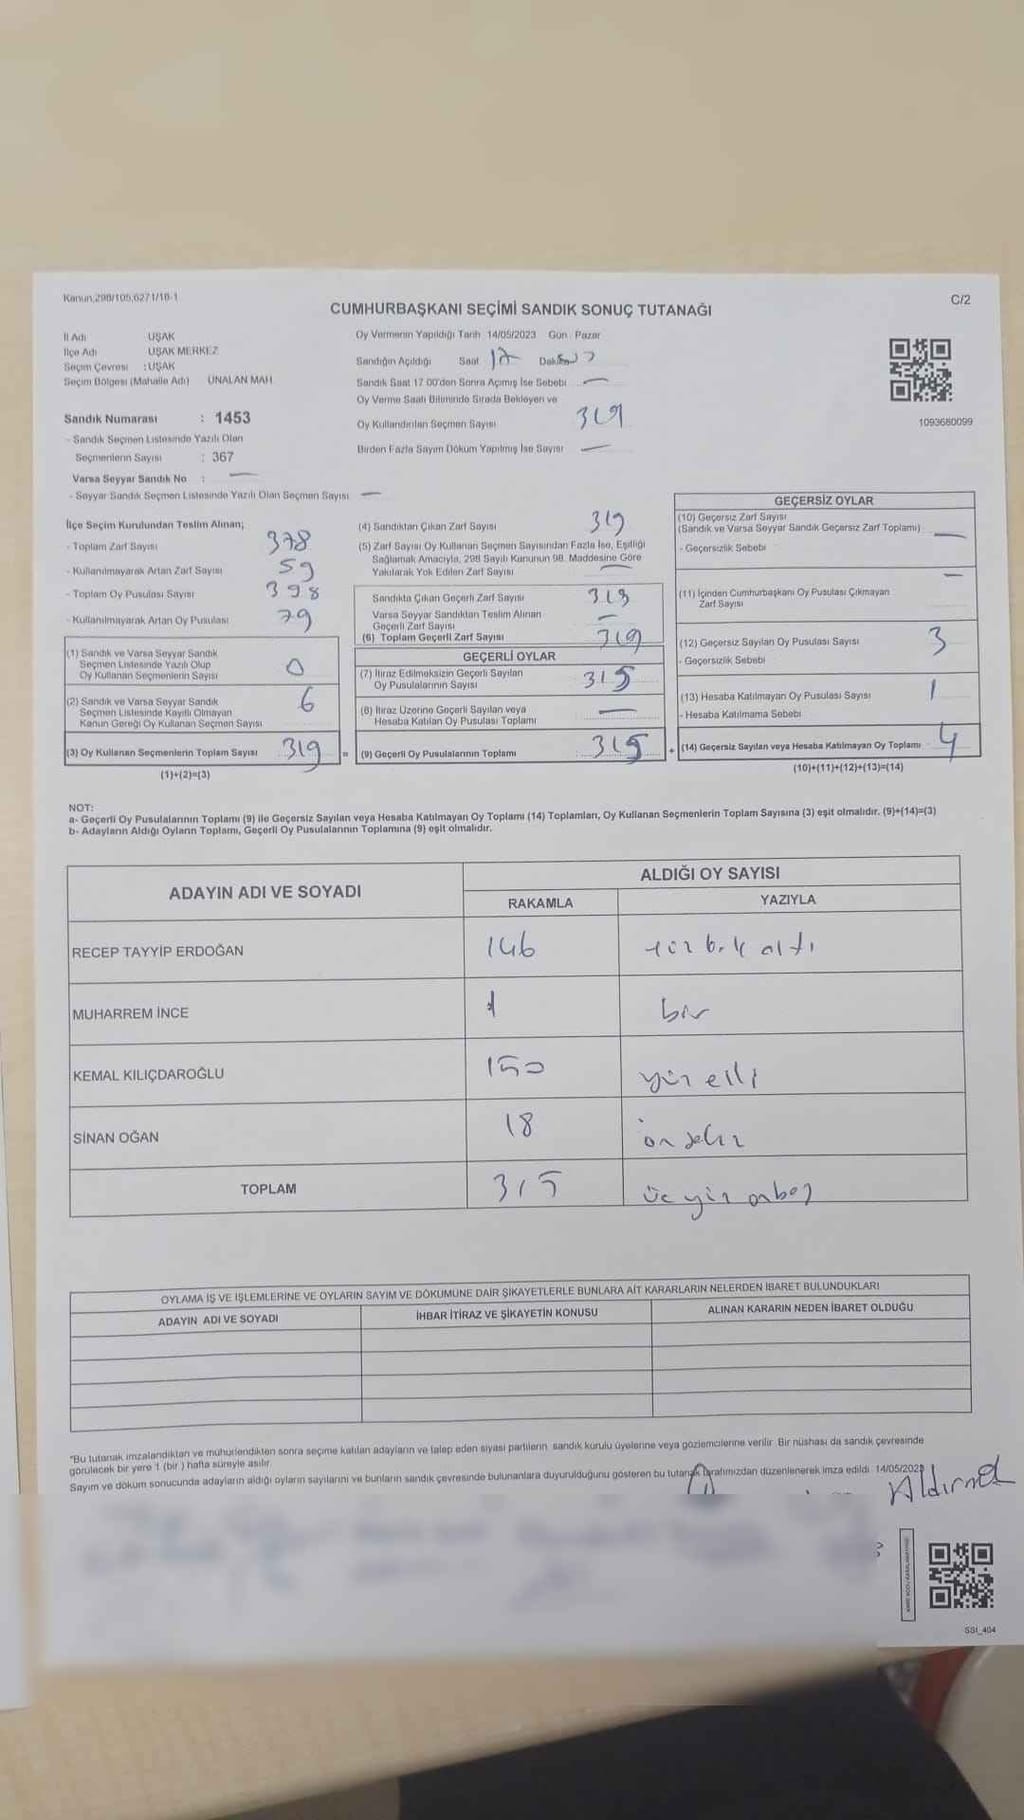 Kanun:298/105,6271/18-1
CUMHURBAŞKANI SEÇİMİ SANDIK SONUÇ TUTANAĞI
C/2
İl Adı UŞAK
İlçe Adı UŞAK MERKEZ
Seçim Çevresi :UŞAK
Seçim Bölgesi (Mahalle Adı) ÜNALAN MAH
Sandık Numarası : 1453
- Sandık Seçmen Listesinde Yazılı Olan
Seçmenlerin Sayısı : 367
Varsa Seyyar Sandık No : —
- Seyyar Sandık Seçmen Listesinde Yazılı Olan Seçmen Sayısı —
Oy Vermenin Yapıldığı Tarih 14/05/2023 Gün Pazar
Sandığın Açıldığı Saat 17
Sandık Saat 17 00'den Sonra Açımış İse Sebebi —
Oy Verme Saati Bitiminde Sırada Bekleyen ve
Oy Kullandırılan Seçmen Sayısı 319
Birden Fazla Sayım Döküm Yapılmış İse Sayısı —
1093680099
İlçe Seçim Kurulundan Teslim Alınan;
- Toplam Zarf Sayısı 378
- Kullanılmayarak Artan Zarf Sayısı 59
- Toplam Oy Pusulası Sayısı 398
- Kullanılmayarak Artan Oy Pusulası 79
(1) Sandık ve Varsa Seyyar Sandık
Seçmen Listesinde Yazılı Olup
Oy Kullanan Seçmenlerin Sayısı 0
(2) Sandık ve Varsa Seyyar Sandık
Seçmen Listesinde Kayıtlı Olmayan
Kanun Gereği Oy Kullanan Seçmen Sayısı 6
(3) Oy Kullanan Seçmenlerin Toplam Sayısı 319 =
(1)+(2)=(3)
(4) Sandıktan Çıkan Zarf Sayısı 319
(5) Zarf Sayısı Oy Kullanan Seçmen Sayısından Fazla İse, Eşitliği
Sağlamak Amacıyla, 298 Sayılı Kanunun 98. Maddesine Göre
Yakılarak Yok Edilen Zarf Sayısı —
Sandıkta Çıkan Geçerli Zarf Sayısı 319
Varsa Seyyar Sandıktan Teslim Alınan
Geçerli Zarf Sayısı —
(6) Toplam Geçerli Zarf Sayısı 319
GEÇERLİ OYLAR
(7) İtiraz Edilmeksizin Geçerli Sayılan
Oy Pusulalarının Sayısı 315
(8) İtiraz Üzerine Geçerli Sayılan veya
Hesaba Katılan Oy Pusulası Toplamı —
(9) Geçerli Oy Pusulalarının Toplamı 315 +
GEÇERSİZ OYLAR
(10) Geçersiz Zarf Sayısı
(Sandık ve Varsa Seyyar Sandık Geçersiz Zarf Toplamı) —
- Geçersizlik Sebebi
(11) İçinden Cumhurbaşkanı Oy Pusulası Çıkmayan —
Zarf Sayısı
(12) Geçersiz Sayılan Oy Pusulası Sayısı 3
- Geçersizlik Sebebi
(13) Hesaba Katılmayan Oy Pusulası Sayısı 1
- Hesaba Katılmama Sebebi
(14) Geçersiz Sayılan veya Hesaba Katılmayan Oy Toplamı 4
(10)+(11)+(12)+(13)=(14)
NOT:
a- Geçerli Oy Pusulalarının Toplamı (9) ile Geçersiz Sayılan veya Hesaba Katılmayan Oy Toplamı (14) Toplamları, Oy Kullanan Seçmenlerin Toplam Sayısına (3) eşit olmalıdır. (9)+(14)=(3)
b- Adayların Aldığı Oyların Toplamı, Geçerli Oy Pusulalarının Toplamına (9) eşit olmalıdır.
ADAYIN ADI VE SOYADI
ALDIĞI OY SAYISI
RAKAMLA YAZIYLA
RECEP TAYYİP ERDOĞAN 146 yüz kırk altı
MUHARREM İNCE 1 bir
KEMAL KILIÇDAROĞLU 150 yüz elli
SİNAN OĞAN 18 on sekiz
TOPLAM 315 üç yüz onbeş
OYLAMA İŞ VE İŞLEMLERİNE VE OYLARIN SAYIM VE DÖKÜMÜNE DAİR ŞİKAYETLERLE BUNLARA AİT KARARLARIN NELERDEN İBARET BULUNDUKLARI
ADAYIN ADI VE SOYADI İHBAR İTİRAZ VE ŞİKAYETİN KONUSU ALINAN KARARIN NEDEN İBARET OLDUĞU
"Bu tutanak imzalandıktan ve mühürlendikten sonra seçime katılan adayların ve talep eden siyasi partilerin sandık kurulu üyelerine veya gözlemcilerine verilir Bir nüshası da sandık çevresinde
görülecek bir yere 1 (bir) hafta süreyle asılır.
Sayım ve döküm sonucunda adayların aldığı oyların sayılarını ve bunların sandık çevresinde bulunanlara duyurulduğunu gösteren bu tutanak tarafımızdan düzenlenerek imza edildi 14/05/2023
Aldırmet
SSI_404